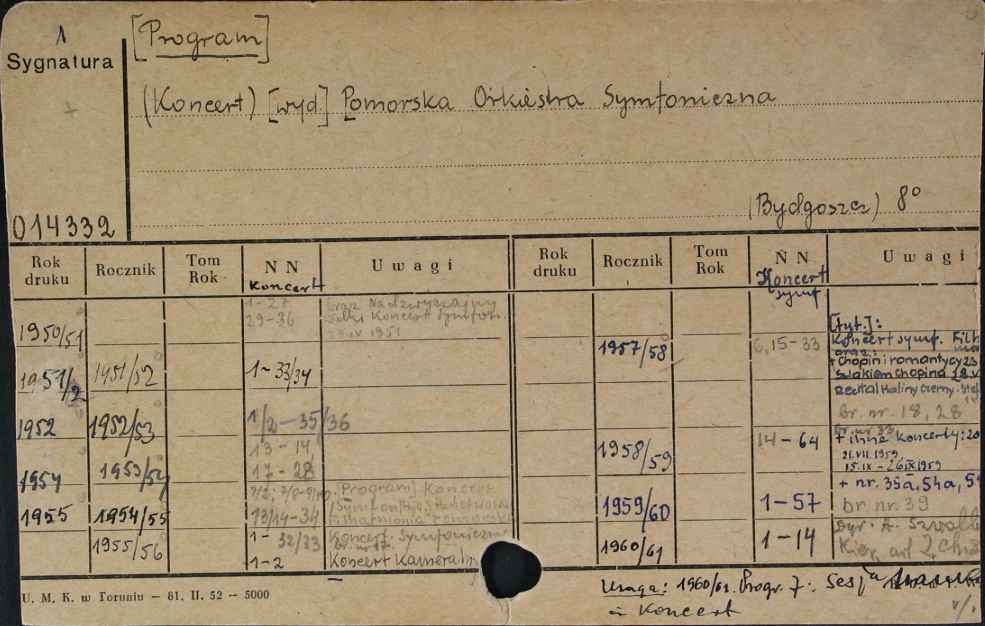 1
[Program]
Sygnatura
(Koncert) [wyd] Pomorska Orkiestra Symfoniczna
(Bydgoszcz) 8°
014332
Rok druku Rocznik Tom Rok N N Koncert Uwagi Rok druku Rocznik Tom Rok N N Koncert symf Uwagi
1950/51 1-27 oraz Nadzwyczajny
29-36 Koncert symfon.
IV 1951
[tyt.]:
1957/58 6,15-33 Koncert symf. Filh
oraz:
+ Chopin i romantycy 23
Szlakiem Chopina
1951/2 1951/52 1-33/34
Recital Haliny Czerny-
br. nr. 18, 28
1952 1952/53 1/2-35/36
1958/59 14-64 + inne koncerty:
VII.1959
15.IX-26.IX.1959
13-14,
1954 1953/54 17-28
+ nr. 35a, 54a,
[Program] Koncert
1955 1954/55 13/14-34
1959/60 1-57 br. nr. 39
1955/56 1-32/33 Koncert Symfoniczny
1-2 Koncert Kameralny
1960/61 1-14 Kier. art. Z.
U. M. K. w Toruniu — 81. II. 52 — 5000
Uwaga: 1960/61. Progr. 7: Sesja
Koncert